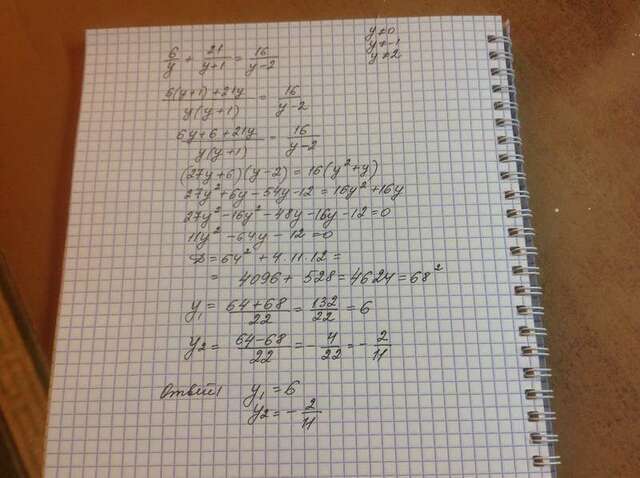 6/y + 21/y+1 = 16/y-2
y≠0
y≠-1
y≠2
6(y+1)+21y/y(y+1) = 16/y-2
6y+6+21y/y(y+1) = 16/y-2
(27y+6)(y-2) = 16(y²+y)
27y²+6y-54y-12=16y²+16y
27y²-16y²-48y-16y-12=0
11y²-64y-12=0
D=64²+4·11·12=
= 4096+528=4624=68²
y₁= 64+68/22 = 132/22 = 6
y₂= 64-68/22 = -4/22 = -2/11
Ответ: y₁=6
y₂=-2/11